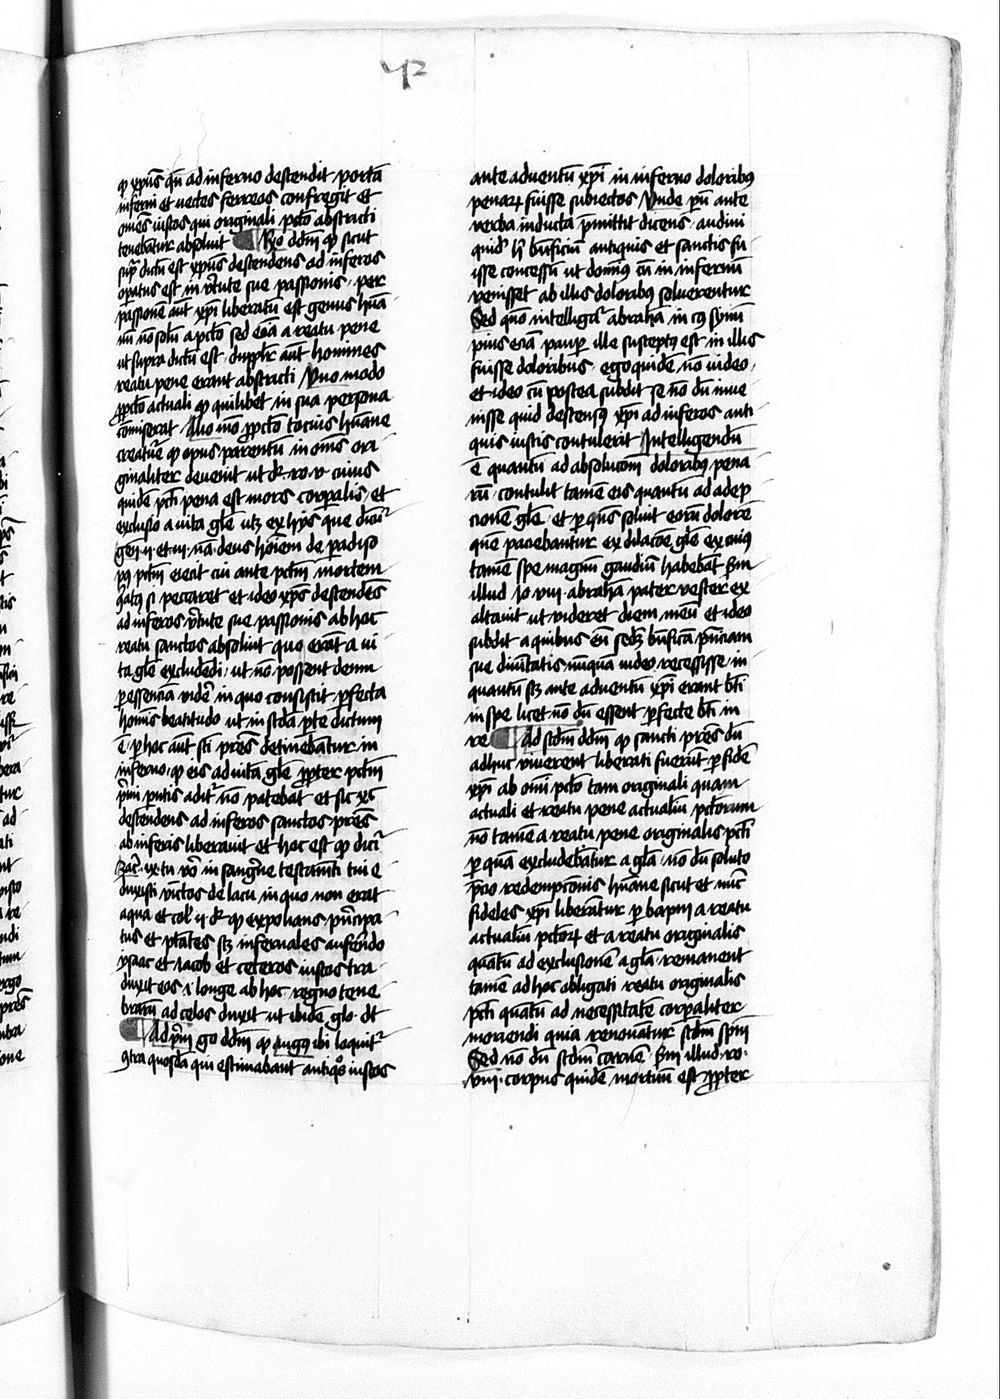 42
qͥ xpūs qn̄ ad inferno destendit portā
inferni et vectes ferreos confregit et
omēs iustos qui originali pctō abstracti
tenebātur absoluit Rn̄o ddm̄ qͥ sicut
supͣ dictū est xpūs destendens ad inferos
opatus est in v̄tute sue passionis · per
passionē aut̄ xpi liberatū est genus hūa
nū nō solū a pctō sed eciā a reatu pene
ut supra dictū est · dupplr aut̄ homines
reatu pene erant abstracti Vno modo
ꝓ pctō actuali qͥ quilibet in sua persona
cōmiserat Alio mō ꝓ pctō tocius hūane
creatur̄e qͥ opus parentū in om̄s ori
ginaliter deuenit ut dr̄ · ro · v · cuius
quidē pcti pena est mors corpalis · et
exclusio a vita glē utꝫ ex hijs que dicūtͬ
gen̄ · ii · et iii · nā deus hoīem de padiso
pꝰ pctm̄ eiecit cui ante pctm̄ mortem
 si peccaret et ideo xpūs destendēs
ad inferos v̄tute sue passionis ab hoc
reatu sanctos absoluit quo erāt a vi
ta glē excludēdi · ut nō possent deum
ꝑ essenciā vidēr in quo consistit ꝑfecta
homīs beatitudo ut in scdā ꝑte dictum
ē · ꝑ hoc aut̄ scti prēs detinebātur in
inferno · qͥ eis ad vitā glē ꝓpter pctm̄
pͥmi pntis aditꝰ nō patebat et sic xc̄
destendens ad inferos sanctos prēs
ab inferis liberauit et hoc est qͥ dicͥ
zac̄ · ix · tu v̄o in sangͥne testamēti tui e
duxisti vīctos de lacu in quo non erat
aqua et col̄ · ii · dr̄ qͥ expolians · pͥncipa
tus et ptātes scꝫ infernales auferēdo
ysaac et iacob et ceteros iustos tra
duxit eos · i · longe ab hoc regno tene
brarū ad celos duxit ut ibidē glo · dt
Ad pͥm gͦ ddm̄ qͥ augꝰ ibi loquitͬ
9tra quosdā qui estimabant antiqͦs iustos
ante aduentū xpi in inferno doloribꝰ
penarꝝ fuisse subiectos Vnde pꝰ ante
verba inducta p̄mittit dicens · addūt
quidē h bn̄ficiū antiquis et sanctis fu
isse concessū ut domīꝰ cū in infernū
venisset ab illis doloribꝰ soluerentur
Sed quō intelligatͬ abrahā in cꝰ synū
pius eciā paupͬ ille susceptꝰ est in illis
fuisse doloribus · ego quidē nō video ·
et ideo cū postea subdit se nō dū inue
nisse quid destensꝰ xpi ad inferos anti
quis iustis contulerit Intelligendū
ē quantū ad absolucōm doloribꝰ pena
rū · contulit tamē eis quantū ad adep
cionē glē · et ꝑ qn̄s soluit eorū dolorē
quē paciebantur ex dilacōe glē ex cuiꝰ
tamē spe magnū gaudiū habebāt scm̄
illud Io · viii · abrahā pater vester ex
altauit ut videret diem meū et ideo
subdit a quibus eū scdꝫ bn̄ficā pn̄ciam
sue diuītatis nūquā video recessisse · in
quantū scꝫ ante aduentū xpi erant bti
in spe licet nō dū essent ꝑfecte bti in
re Ad scdm̄ ddm̄ qͥ sancti prēs dū
adhuc viuerent liberati fuerūt ꝑ fidē
xpi ab omī pctō tam originali quam
actuali et reatu pene actualiū pctorum
nō tamē a reatu pene originalis pcti
ꝑ quā excludebātur a glā · nō dū soluto
p̄cio redempcōnis hūane sicut et nūc
fideles xpi liberātur ꝑ bapm̄ a reatu
actualiū pctorꝝ et a reatu originalis
quātū ad exclusionē a glā · remanent
tamē ad hoc obligati reatu originalis
pcti quātū ad necessitatē corpaliter
moriendi quia renouātur scdm̄ spm̄
Sed nō dū scdm̄ carnē · scm̄ illud · ro ·
viii · corpus quidē mortuū est ꝓpter